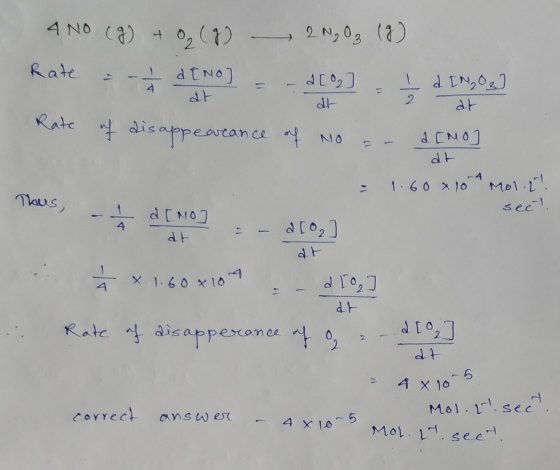 4 NO (g) + O₂ (g) ⟶ 2 N₂O₃ (g)
Rate = - 1/4 d[NO]/dt = - d[O₂]/dt = 1/2 d[N₂O₃]/dt
Rate of disappearance of NO = - d[NO]/dt
= 1.60 × 10⁻⁴ Mol. L⁻¹. sec⁻¹.
Thus,
- 1/4 d[NO]/dt = - d[O₂]/dt
∴ 1/4 × 1.60 × 10⁻⁴ = - d[O₂]/dt
∴ Rate of disapperance of O₂ = - d[O₂]/dt
= 4 × 10⁻⁵ Mol. L⁻¹. sec⁻¹.
correct answer - 4 × 10⁻⁵ Mol. L⁻¹. sec⁻¹.